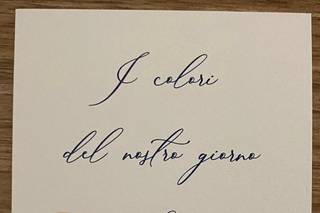 I colori
del nostro giorno